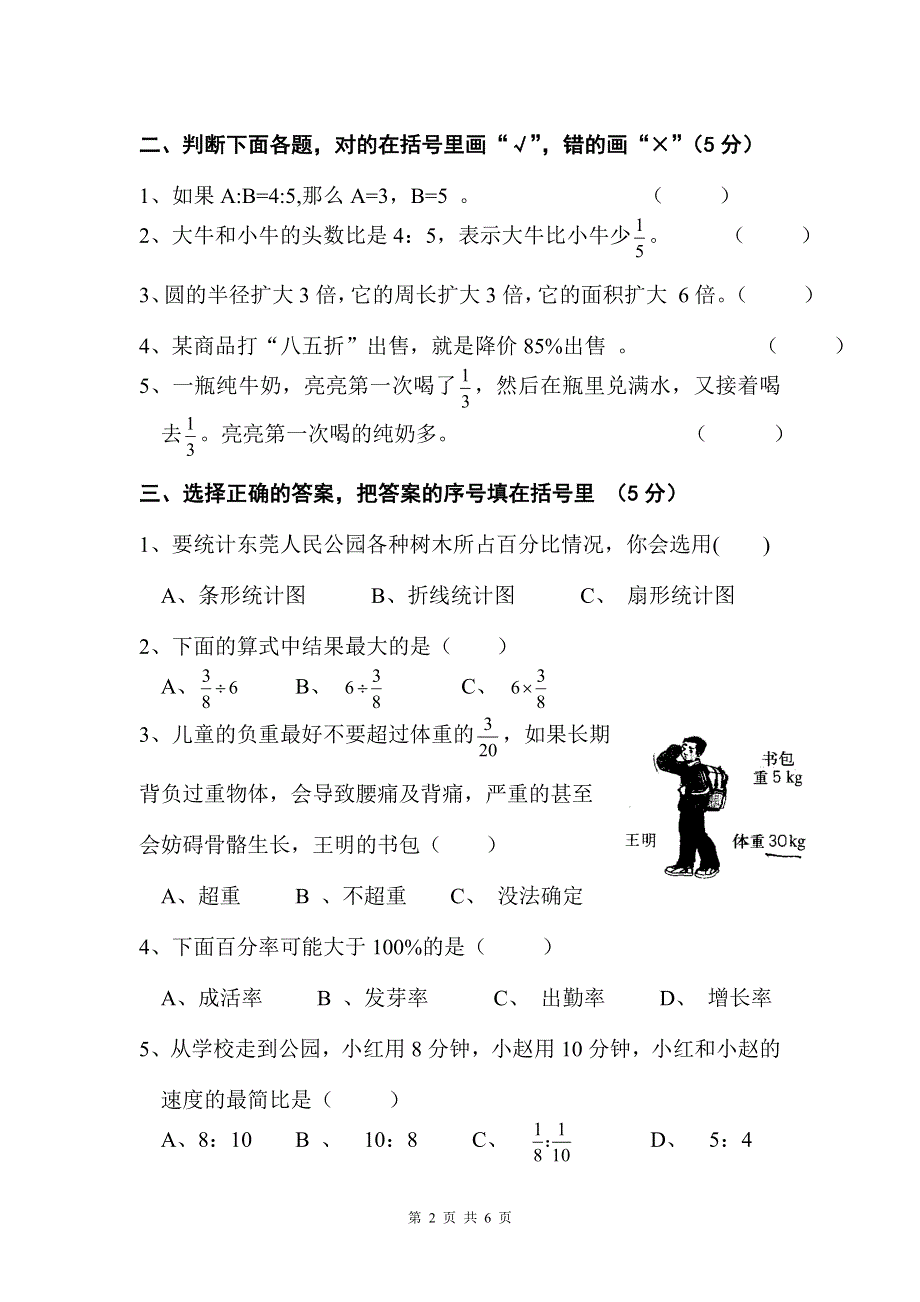 二、判断下面各题，对的在括号里画“√”，错的画“×”（5 分）
1、如果 A:B=4:5,那么 A=3，B=5 。 （ ）
2、大牛和小牛的头数比是 4：5，表示大牛比小牛少1/5。 （ ）
3、圆的半径扩大 3 倍，它的周长扩大 3 倍，它的面积扩大 6 倍。（ ）
4、某商品打“八五折”出售，就是降价 85%出售 。 （ ）
5、一瓶纯牛奶，亮亮第一次喝了1/3，然后在瓶里兑满水，又接着喝
去1/3。亮亮第一次喝的纯奶多。 （ ）
三、选择正确的答案，把答案的序号填在括号里 （5 分）
1、要统计东莞人民公园各种树木所占百分比情况，你会选用( )
A、条形统计图 B、折线统计图 C、 扇形统计图
2、下面的算式中结果最大的是（ ）
A、3/8÷6 B、 6÷3/8 C、 6×3/8
3、儿童的负重最好不要超过体重的3/20，如果长期
背负过重物体，会导致腰痛及背痛，严重的甚至
会妨碍骨骼生长，王明的书包（ ）
书包
重5kg
王明 体重30kg
A、超重 B 、不超重 C、 没法确定
4、下面百分率可能大于 100%的是（ ）
A、成活率 B 、发芽率 C、 出勤率 D、 增长率
5、从学校走到公园，小红用 8 分钟，小赵用 10 分钟，小红和小赵的
速度的最简比是（ ）
A、8：10 B 、 10：8 C、 1/8:1/10 D、 5：4
第 2 页 共 6 页